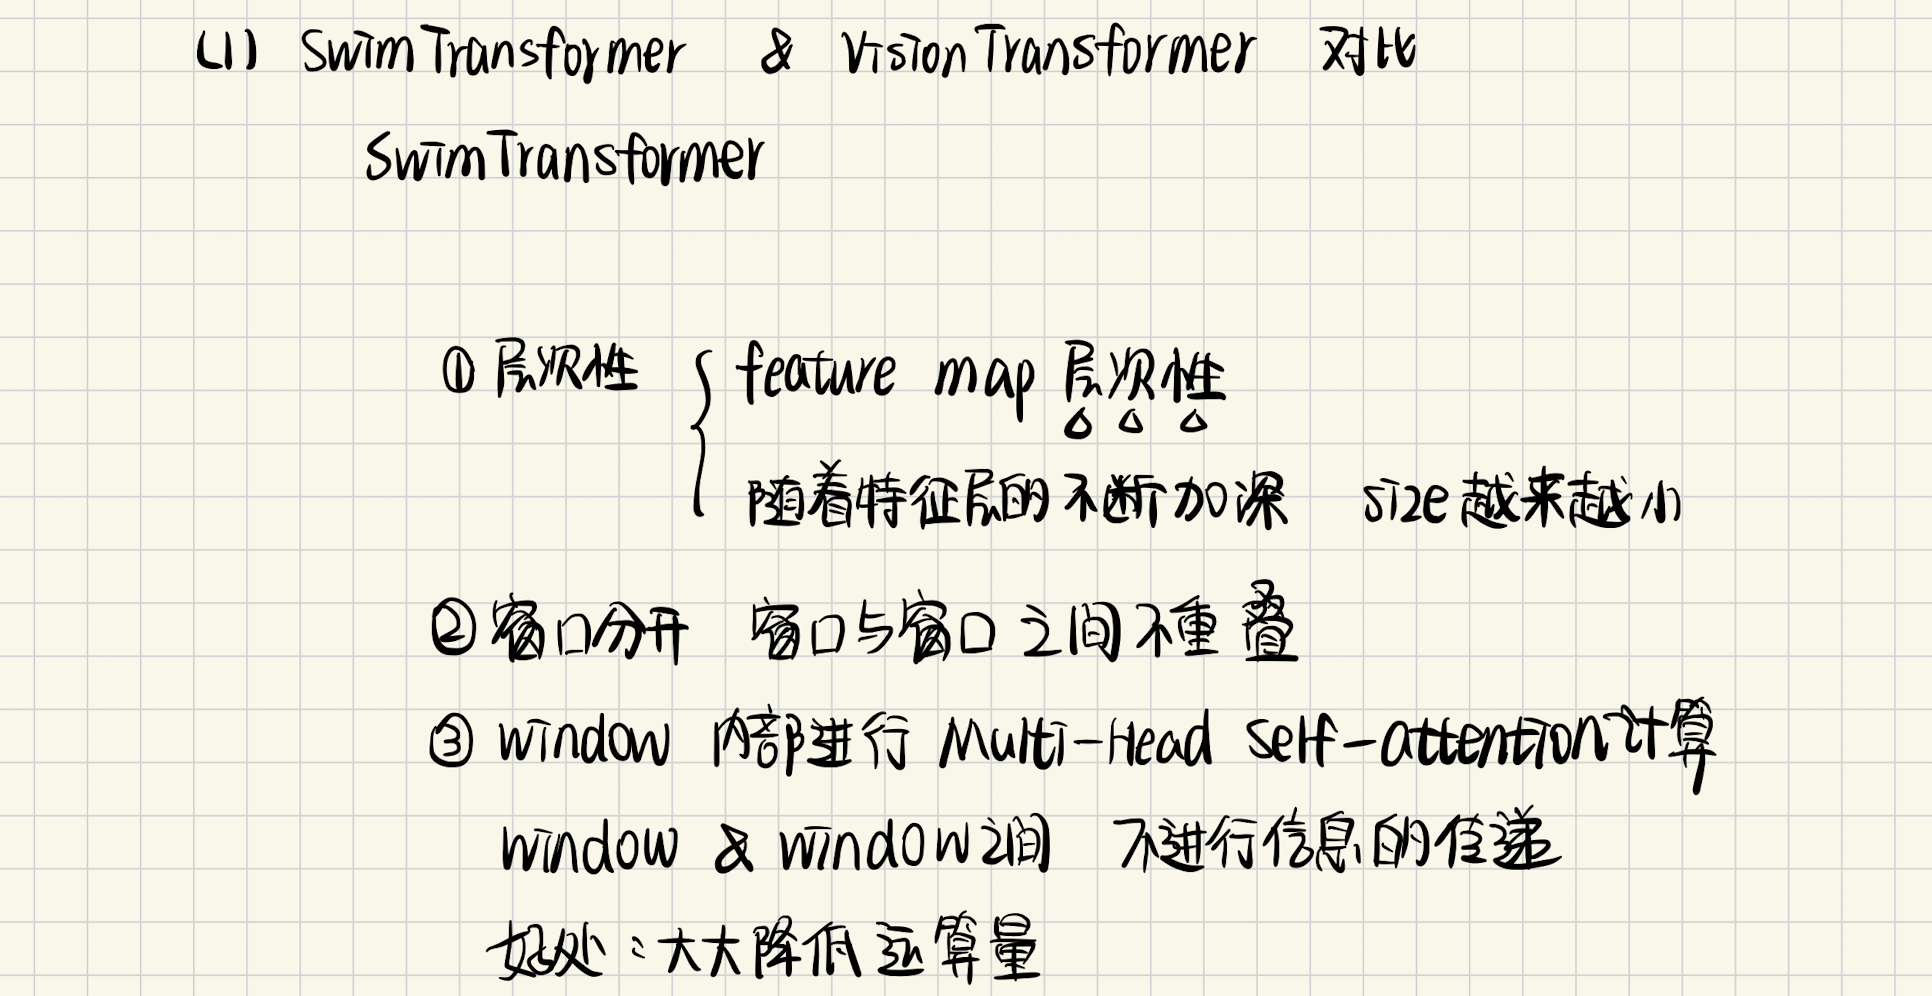 (1) Swim Transformer & Vision Transformer 对比
Swim Transformer
① 层次性 { feature map 层次性
随着特征层的不断加深 size越来越小
② 窗口分开 窗口与窗口之间不重叠
③ window 内部进行 Multi-Head Self-attention计算
window & window之间 不进行信息的传递
好处：大大降低运算量